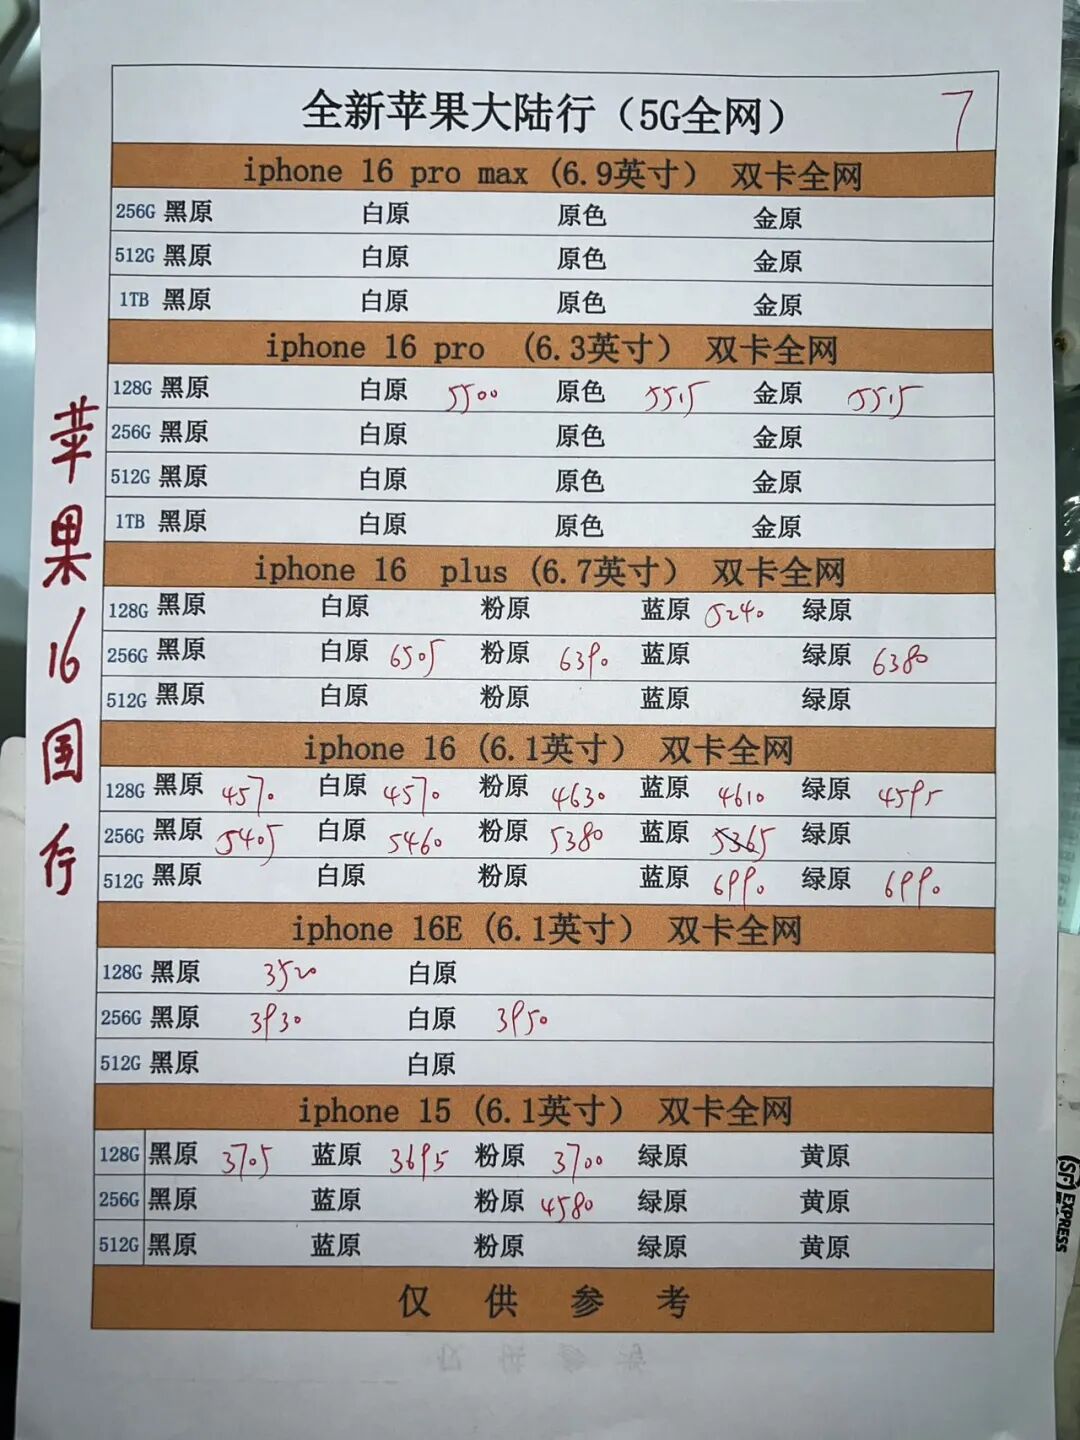 全新苹果大陆行（5G全网） 7
iphone 16 pro max (6.9英寸） 双卡全网
256G 黑原 白原 原色 金原
512G 黑原 白原 原色 金原
1TB 黑原 白原 原色 金原
iphone 16 pro （6.3英寸） 双卡全网
128G 黑原 白原 5500 原色 5515 金原 5515
256G 黑原 白原 原色 金原
512G 黑原 白原 原色 金原
1TB 黑原 白原 原色 金原
iphone 16 plus (6.7英寸） 双卡全网
128G 黑原 白原 粉原 蓝原 5240 绿原
256G 黑原 白原 6505 粉原 6390 蓝原 绿原 6380
512G 黑原 白原 粉原 蓝原 绿原
iphone 16 (6.1英寸） 双卡全网
128G 黑原 4570 白原 4570 粉原 4630 蓝原 4610 绿原 4595
256G 黑原 5405 白原 5460 粉原 5380 蓝原 5365 绿原
512G 黑原 白原 粉原 蓝原 6990 绿原 6990
iphone 16E (6.1英寸） 双卡全网
128G 黑原 3520 白原
256G 黑原 3930 白原 3950
512G 黑原 白原
iphone 15 (6.1英寸） 双卡全网
128G 黑原 3705 蓝原 3695 粉原 3700 绿原 黄原
256G 黑原 蓝原 粉原 4580 绿原 黄原
512G 黑原 蓝原 粉原 绿原 黄原
仅供参考
苹果16国行
SF EXPRESS